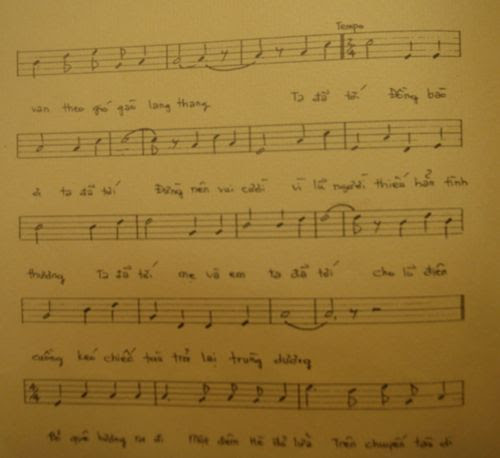 Tempo
van theo gió gào lang thang Ta đã tới Đồng bào
ơi ta đã tới Đừng nên vui cười vì là người thiếu hẳn tình
thương Ta đã tới mẹ và em ta đã tới cho lũ điên
cuồng kéo chiếc tàu trở lại trùng dương
Bỏ quê hương ra đi Một đêm Hè lửa Trên chuyến tàu di